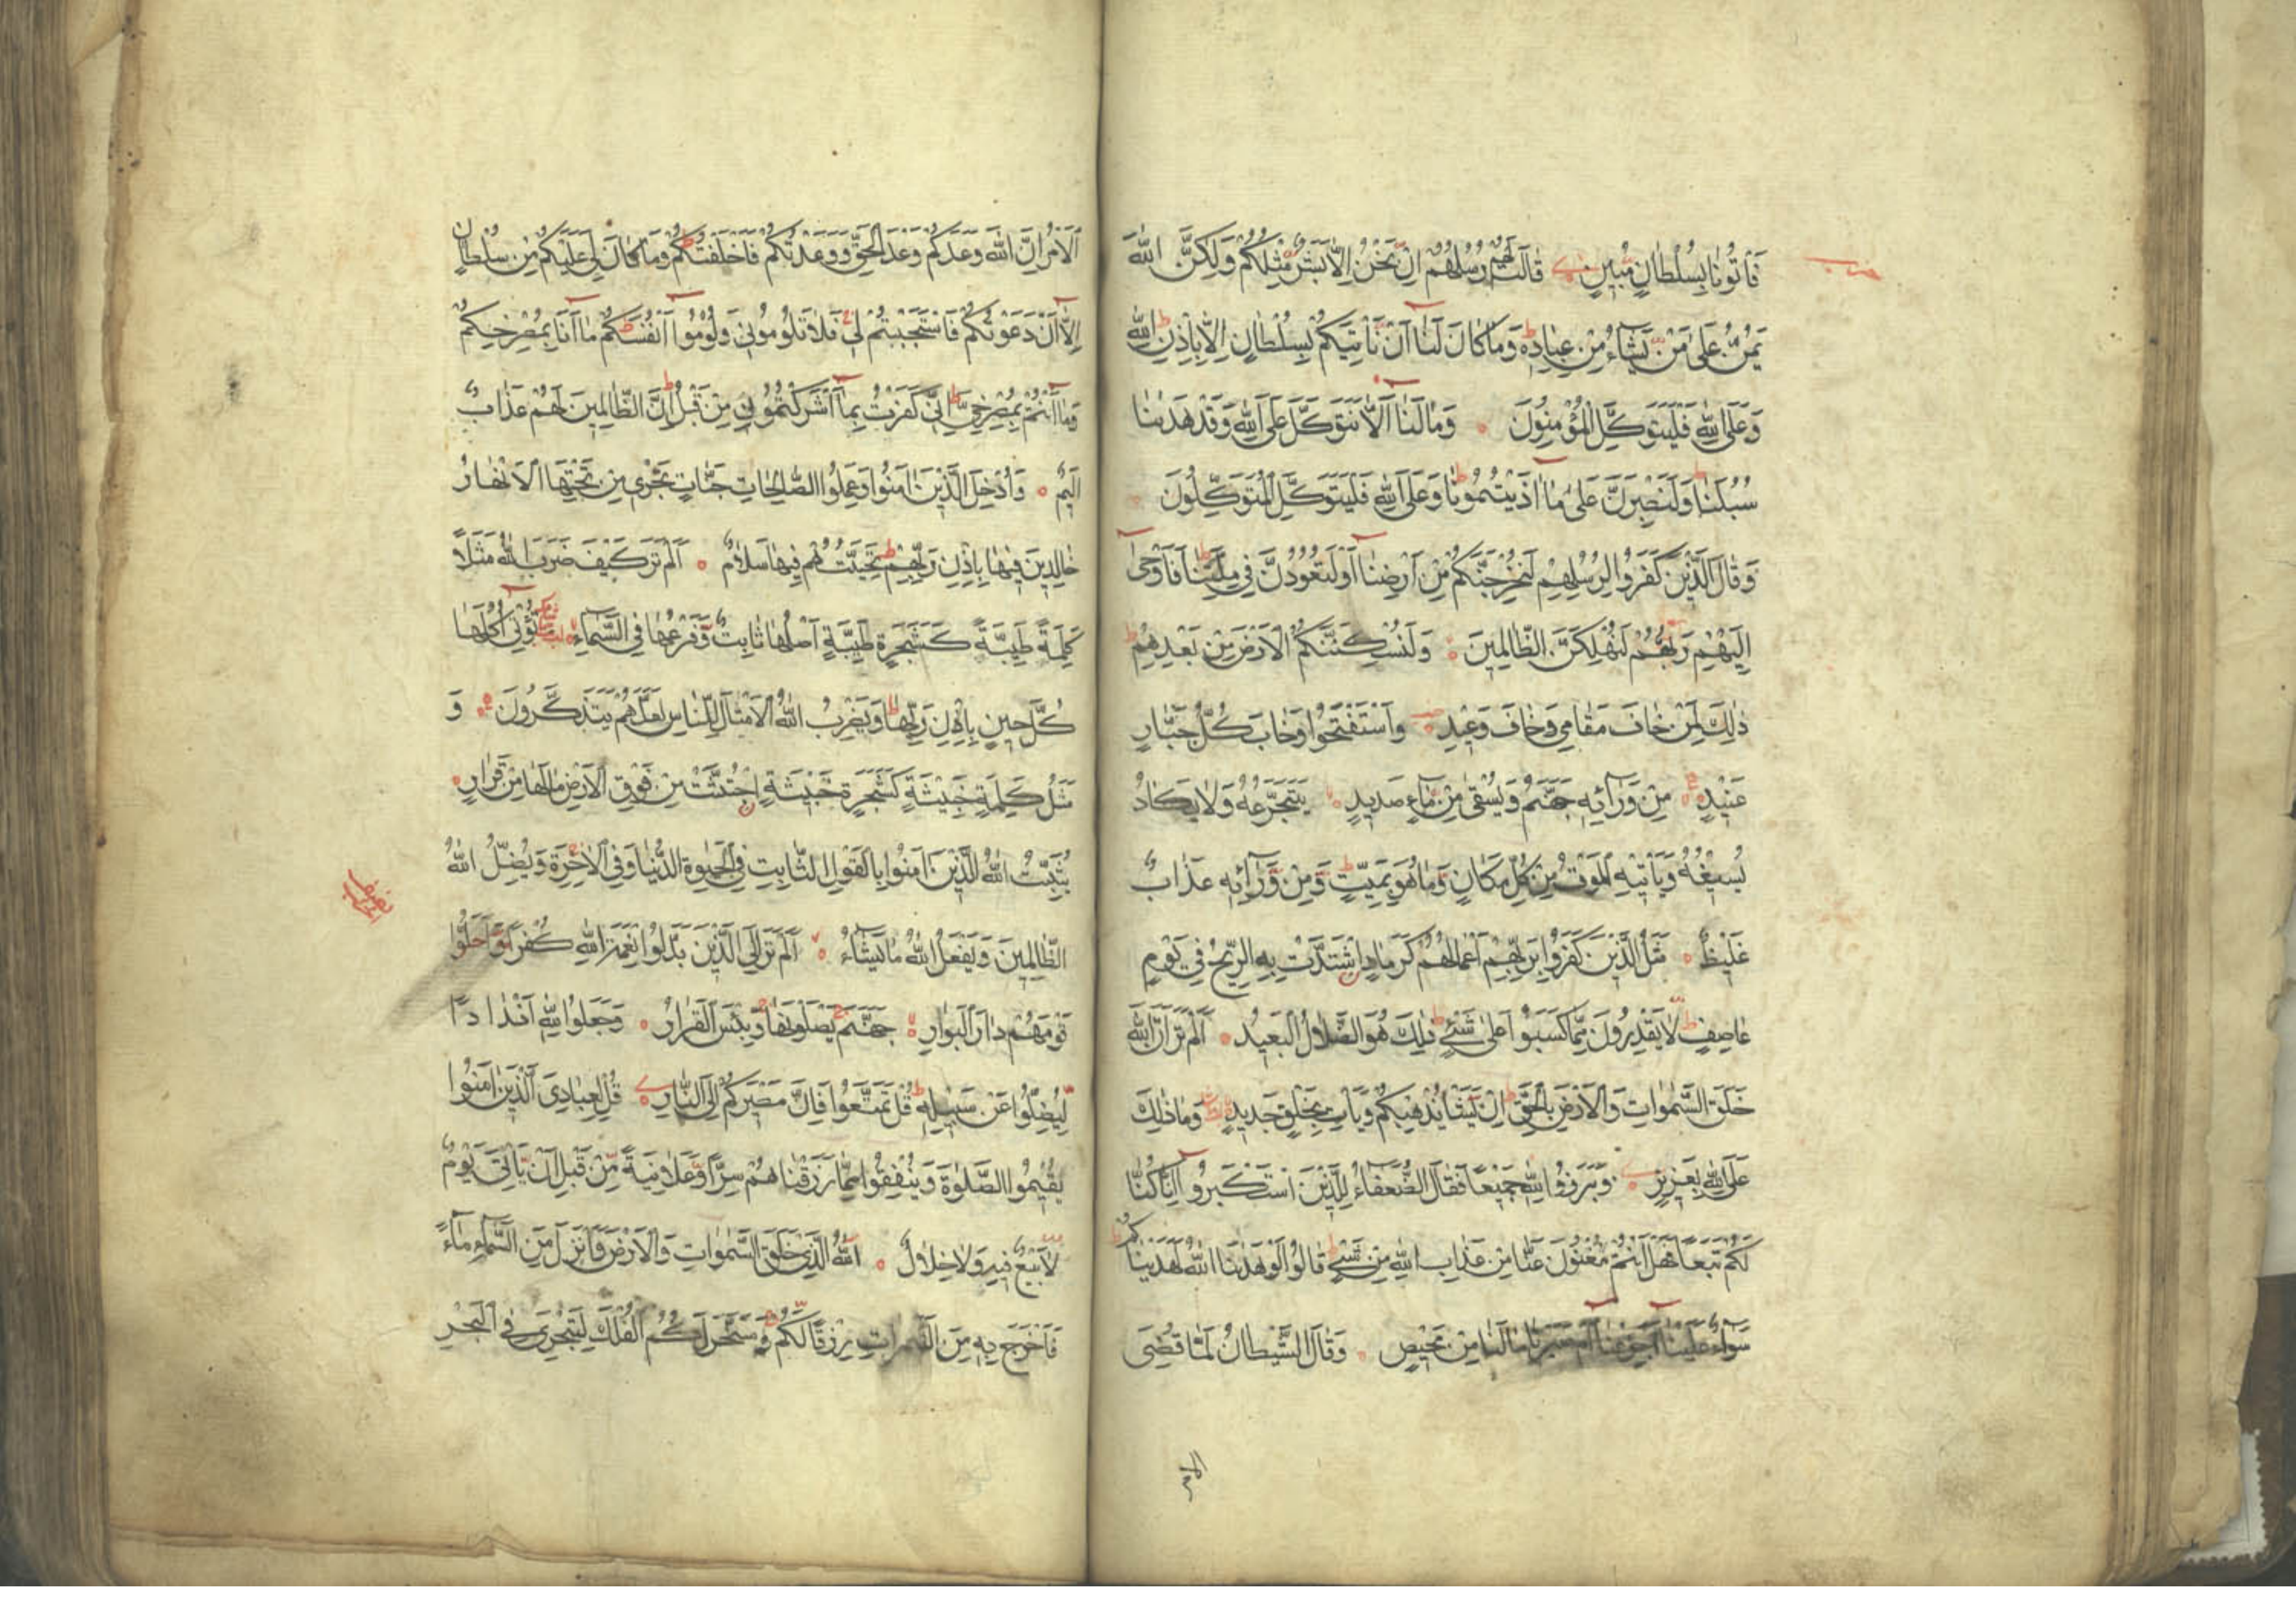 فَأْتُونَا بِسُلْطَانٍ مُبِينٍ قَالَتْ لَهُمْ رُسُلُهُمْ إِنْ نَحْنُ إِلَّا بَشَرٌ مِثْلُكُمْ وَلَكِنَّ اللَّهَ
يَمُنُّ عَلَى مَنْ يَشَاءُ مِنْ عِبَادِهِ وَمَا كَانَ لَنَا أَنْ نَأْتِيَكُمْ بِسُلْطَانٍ إِلَّا بِإِذْنِ اللَّهِ
وَعَلَى اللَّهِ فَلْيَتَوَكَّلِ الْمُؤْمِنُونَ وَمَا لَنَا أَلَّا نَتَوَكَّلَ عَلَى اللَّهِ وَقَدْ هَدَىٰنَا
سُبُلَنَا وَلَنَصْبِرَنَّ عَلَى مَا آذَيْتُمُونَا وَعَلَى اللَّهِ فَلْيَتَوَكَّلِ الْمُتَوَكِّلُونَ
وَقَالَ الَّذِينَ كَفَرُوا لِرُسُلِهِمْ لَنُخْرِجَنَّكُمْ مِنْ أَرْضِنَا أَوْ لَتَعُودُنَّ فِي مِلَّتِنَا فَأَوْحَى
إِلَيْهِمْ رَبُّهُمْ لَنُهْلِكَنَّ الظَّالِمِينَ وَلَنُسْكِنَنَّكُمُ الْأَرْضَ مِنْ بَعْدِهِمْ
ذَلِكَ لِمَنْ خَافَ مَقَامِي وَخَافَ وَعِيدِ وَاسْتَفْتَحُوا وَخَابَ كُلُّ جَبَّارٍ
عَنِيدٍ مِنْ وَرَائِهِ جَهَنَّمُ وَيُسْقَى مِنْ مَاءٍ صَدِيدٍ يَتَجَرَّعُهُ وَلَا يَكَادُ
يُسِيغُهُ وَيَأْتِيهِ الْمَوْتُ مِنْ كُلِّ مَكَانٍ وَمَا هُوَ بِمَيِّتٍ وَمِنْ وَرَائِهِ عَذَابٌ
غَلِيظٌ مَثَلُ الَّذِينَ كَفَرُوا بِرَبِّهِمْ أَعْمَالُهُمْ كَرَمَادٍ اشْتَدَّتْ بِهِ الرِّيحُ فِي يَوْمٍ
عَاصِفٍ لَا يَقْدِرُونَ مِمَّا كَسَبُوا عَلَى شَيْءٍ ذَلِكَ هُوَ الضَّلَالُ الْبَعِيدُ أَلَمْ تَرَ أَنَّ اللَّهَ
خَلَقَ السَّمَوَاتِ وَالْأَرْضَ بِالْحَقِّ إِنْ يَشَأْ يُذْهِبْكُمْ وَيَأْتِ بِخَلْقٍ جَدِيدٍ وَمَا ذَلِكَ
عَلَى اللَّهِ بِعَزِيزٍ وَبَرَزُوا لِلَّهِ جَمِيعًا فَقَالَ الضُّعَفَاءُ لِلَّذِينَ اسْتَكْبَرُوا إِنَّا كُنَّا
لَكُمْ تَبَعًا فَهَلْ أَنْتُمْ مُغْنُونَ عَنَّا مِنْ عَذَابِ اللَّهِ مِنْ شَيْءٍ قَالُوا لَوْ هَدَىٰنَا اللَّهُ لَهَدَيْنَاكُمْ
سَوَاءٌ عَلَيْنَا أَجَزِعْنَا أَمْ صَبَرْنَا مَا لَنَا مِنْ مَحِيصٍ وَقَالَ الشَّيْطَانُ لَمَّا قُضِيَ
الامر
الْأَمْرُ إِنَّ اللَّهَ وَعَدَكُمْ وَعْدَ الْحَقِّ وَوَعَدْتُكُمْ فَأَخْلَفْتُكُمْ وَمَا كَانَ لِيَ عَلَيْكُمْ مِنْ سُلْطَانٍ
إِلَّا أَنْ دَعَوْتُكُمْ فَاسْتَجَبْتُمْ لِي فَلَا تَلُومُونِي وَلُومُوا أَنْفُسَكُمْ مَا أَنَا بِمُصْرِخِكُمْ
وَمَا أَنْتُمْ بِمُصْرِخِيَّ إِنِّي كَفَرْتُ بِمَا أَشْرَكْتُمُونِ مِنْ قَبْلُ إِنَّ الظَّالِمِينَ لَهُمْ عَذَابٌ
أَلِيمٌ وَأُدْخِلَ الَّذِينَ آمَنُوا وَعَمِلُوا الصَّالِحَاتِ جَنَّاتٍ تَجْرِي مِنْ تَحْتِهَا الْأَنْهَارُ
خَالِدِينَ فِيهَا بِإِذْنِ رَبِّهِمْ تَحِيَّتُهُمْ فِيهَا سَلَامٌ أَلَمْ تَرَ كَيْفَ ضَرَبَ اللَّهُ مَثَلًا
كَلِمَةً طَيِّبَةً كَشَجَرَةٍ طَيِّبَةٍ أَصْلُهَا ثَابِتٌ وَفَرْعُهَا فِي السَّمَاءِ تُؤْتِي أُكُلَهَا
كُلَّ حِينٍ بِإِذْنِ رَبِّهَا وَيَضْرِبُ اللَّهُ الْأَمْثَالَ لِلنَّاسِ لَعَلَّهُمْ يَتَذَكَّرُونَ وَ
مَثَلُ كَلِمَةٍ خَبِيثَةٍ كَشَجَرَةٍ خَبِيثَةٍ اجْتُثَّتْ مِنْ فَوْقِ الْأَرْضِ مَا لَهَا مِنْ قَرَارٍ
يُثَبِّتُ اللَّهُ الَّذِينَ آمَنُوا بِالْقَوْلِ الثَّابِتِ فِي الْحَيَوةِ الدُّنْيَا وَفِي الْآخِرَةِ وَيُضِلُّ اللَّهُ
الظَّالِمِينَ وَيَفْعَلُ اللَّهُ مَا يَشَاءُ أَلَمْ تَرَ إِلَى الَّذِينَ بَدَّلُوا نِعْمَةَ اللَّهِ كُفْرًا وَأَحَلُّوا
قَوْمَهُمْ دَارَ الْبَوَارِ جَهَنَّمَ يَصْلَوْنَهَا وَبِئْسَ الْقَرَارُ وَجَعَلُوا لِلَّهِ أَنْدَادًا
لِيُضِلُّوا عَنْ سَبِيلِهِ قُلْ تَمَتَّعُوا فَإِنَّ مَصِيرَكُمْ إِلَى النَّارِ قُلْ لِعِبَادِيَ الَّذِينَ آمَنُوا
يُقِيمُوا الصَّلَوةَ وَيُنْفِقُوا مِمَّا رَزَقْنَاهُمْ سِرًّا وَعَلَانِيَةً مِنْ قَبْلِ أَنْ يَأْتِيَ يَوْمٌ
لَا بَيْعٌ فِيهِ وَلَا خِلَالٌ اللَّهُ الَّذِي خَلَقَ السَّمَوَاتِ وَالْأَرْضَ وَأَنْزَلَ مِنَ السَّمَاءِ مَاءً
فَأَخْرَجَ بِهِ مِنَ الثَّمَرَاتِ رِزْقًا لَكُمْ وَسَخَّرَ لَكُمُ الْفُلْكَ لِتَجْرِيَ فِي الْبَحْرِ